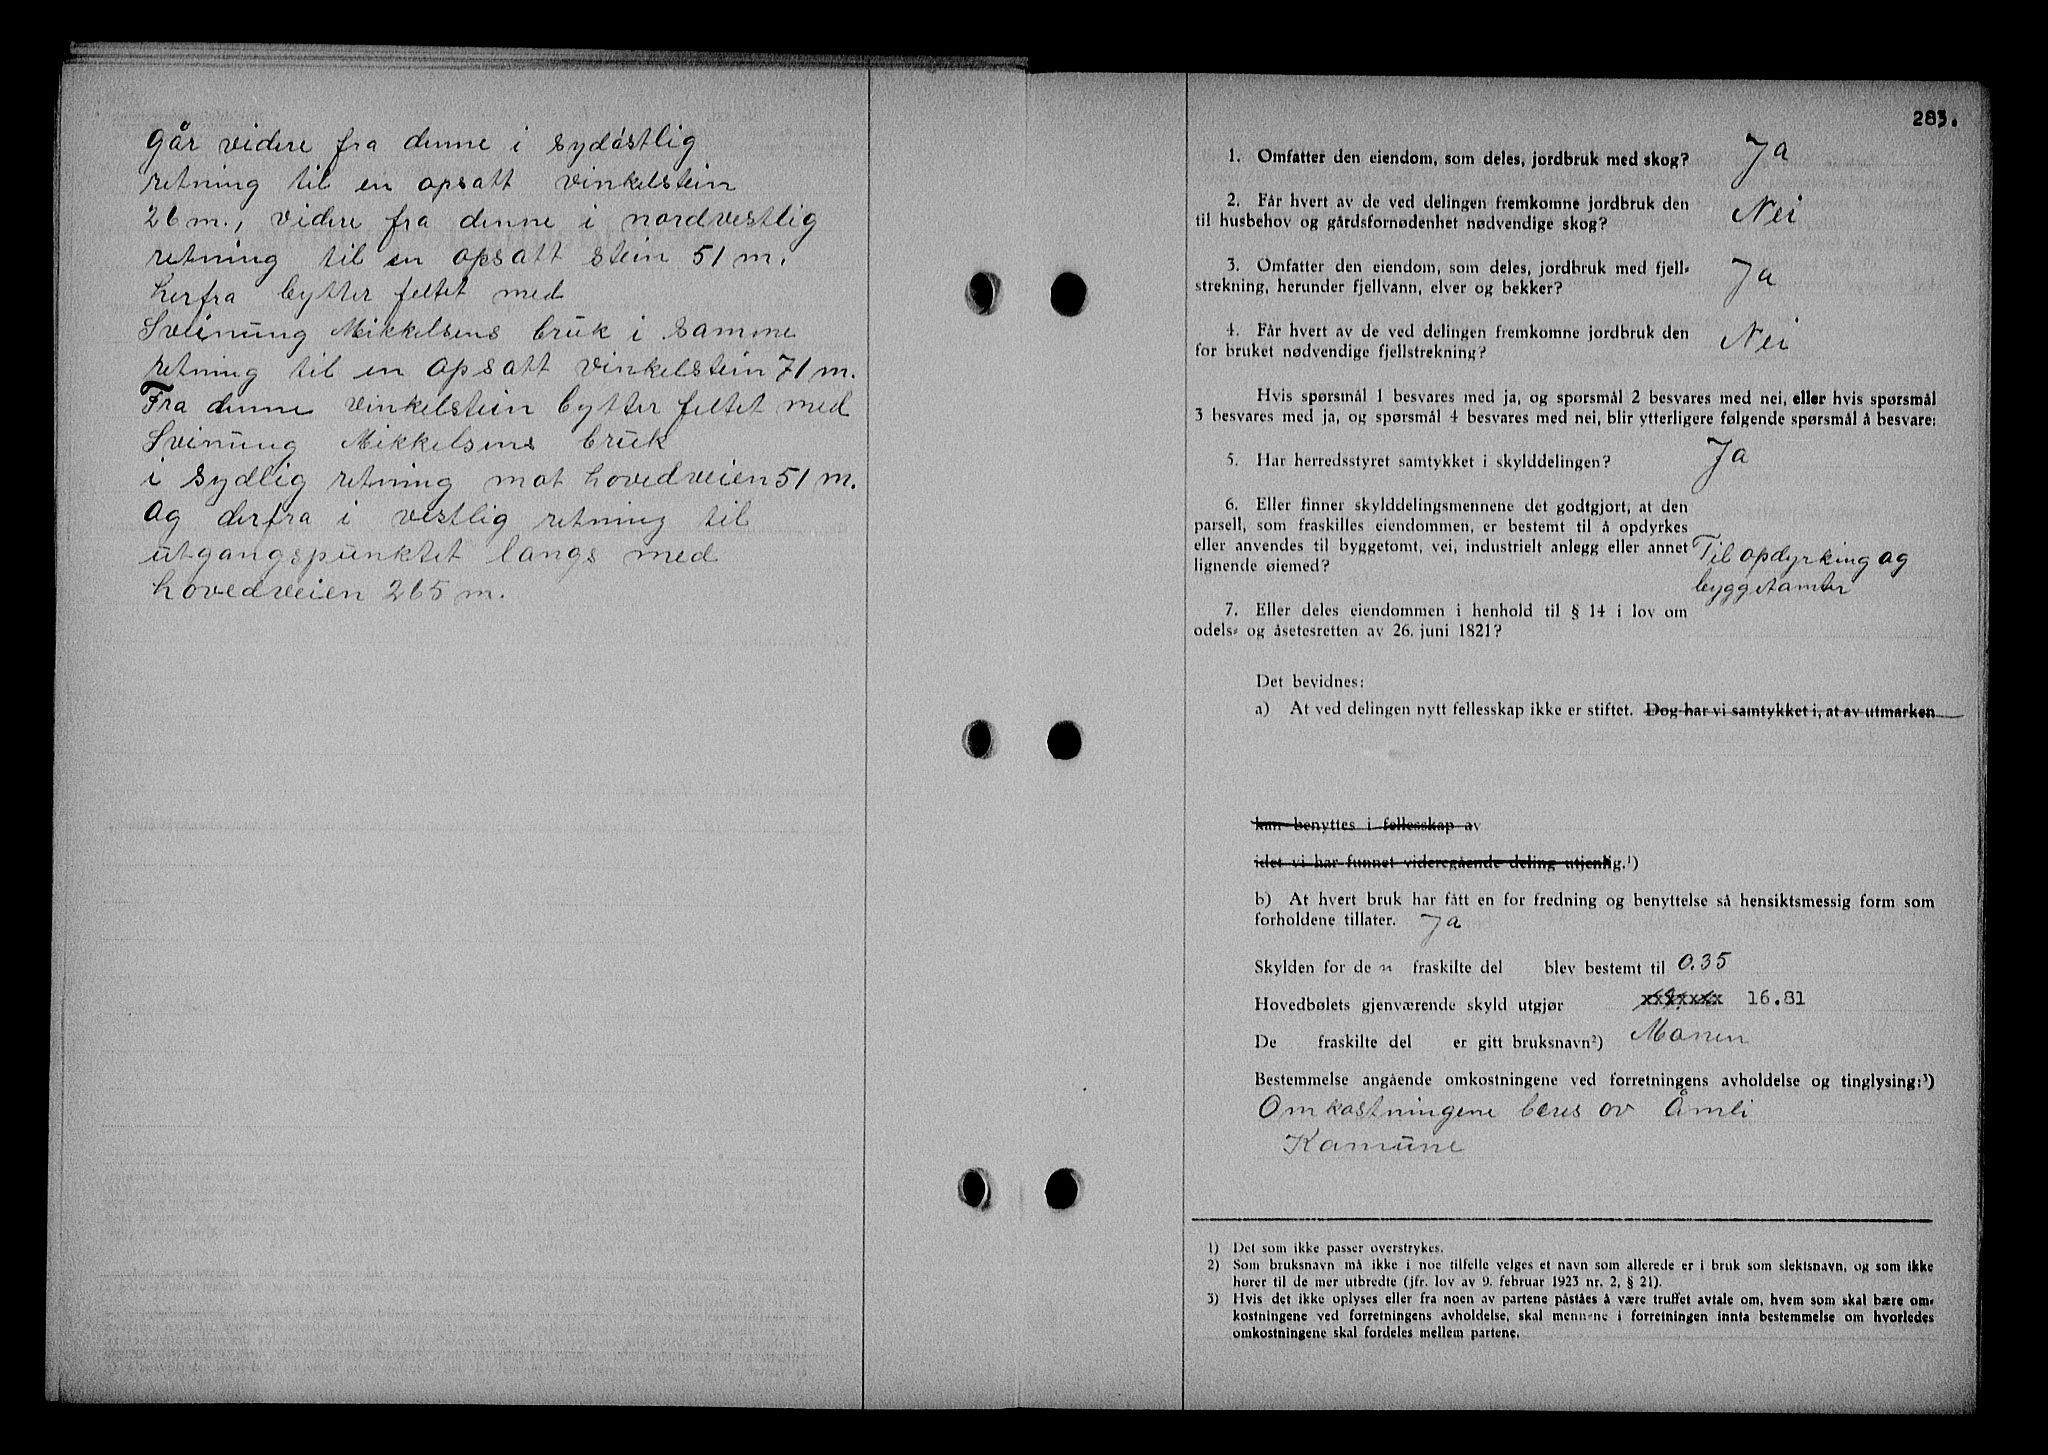 går videre fra denne i sydøstlig
retning til en opsatt vinkelstein
26 m., videre fra denne i nordvestlig
retning til en opsatt stein 51 m.
herfra bytter feltet med
Sveinung Mikkelsens bruk i samme
retning til en opsatt vinkelstein 71 m.
Fra denne vinkelstein bytter feltet med
Sveinung Mikkelsens bruk
i sydlig retning mot hovedveien 51 m.
og derfra i vestlig retning til
utgangspunktet langs med
hovedveien 265 m.
283.
1. Omfatter den eiendom, som deles, jordbruk med skog? Ja
2. Får hvert av de ved delingen fremkomne jordbruk den
til husbehov og gårdsfornødenhet nødvendige skog? Nei
3. Omfatter den eiendom, som deles, jordbruk med fjell-
strekning, herunder fjellvann, elver og bekker? Ja
4. Får hvert av de ved delingen fremkomne jordbruk den
for bruket nødvendige fjellstrekning? Nei
Hvis spørsmål 1 besvares med ja, og spørsmål 2 besvares med nei, eller hvis spørsmål
3 besvares med ja, og spørsmål 4 besvares med nei, blir ytterligere følgende spørsmål å besvare:
5. Har herredsstyret samtykket i skylddelingen? Ja
6. Eller finner skylddelingsmennene det godtgjort, at den
parsell, som fraskilles eiendommen, er bestemt til å opdyrkes
eller anvendes til byggetomt, vei, industrielt anlegg eller annet
lignende øiemed? Til opdyrking og
byggetomter
7. Eller deles eiendommen i henhold til § 14 i lov om
odels- og åsetesretten av 26. juni 1821?
Det bevidnes:
a) At ved delingen nytt fellesskap ikke er stiftet. Dog har vi samtykket i, at av utmarken
kan benyttes i fellesskap av
idet vi har funnet videregående deling utjenlig.¹)
b) At hvert bruk har fått en for fredning og benyttelse så hensiktsmessig form som
forholdene tillater. Ja
Skylden for den fraskilte del blev bestemt til 0.35
Hovedbølets gjenværende skyld utgjør 16.81
De fraskilte del er gitt bruksnavn²) Monen
Bestemmelse angående omkostningene ved forretningens avholdelse og tinglysing:³)
Omkostningene bæres av Åmli
Komune
1) Det som ikke passer overstrykes.
2) Som bruksnavn må ikke i noe tilfelle velges et navn som allerede er i bruk som slektsnavn, og som ikke
hører til de mer utbredte (jfr. lov av 9. februar 1923 nr. 2, § 21).
3) Hvis det ikke oplyses eller fra noen av partene påståes å være truffet avtale om, hvem som skal bære om-
kostningene ved forretningens avholdelse, skal mennene i forretningen innta bestemmelse om hvorledes
omkostningene skal fordeles mellem partene.